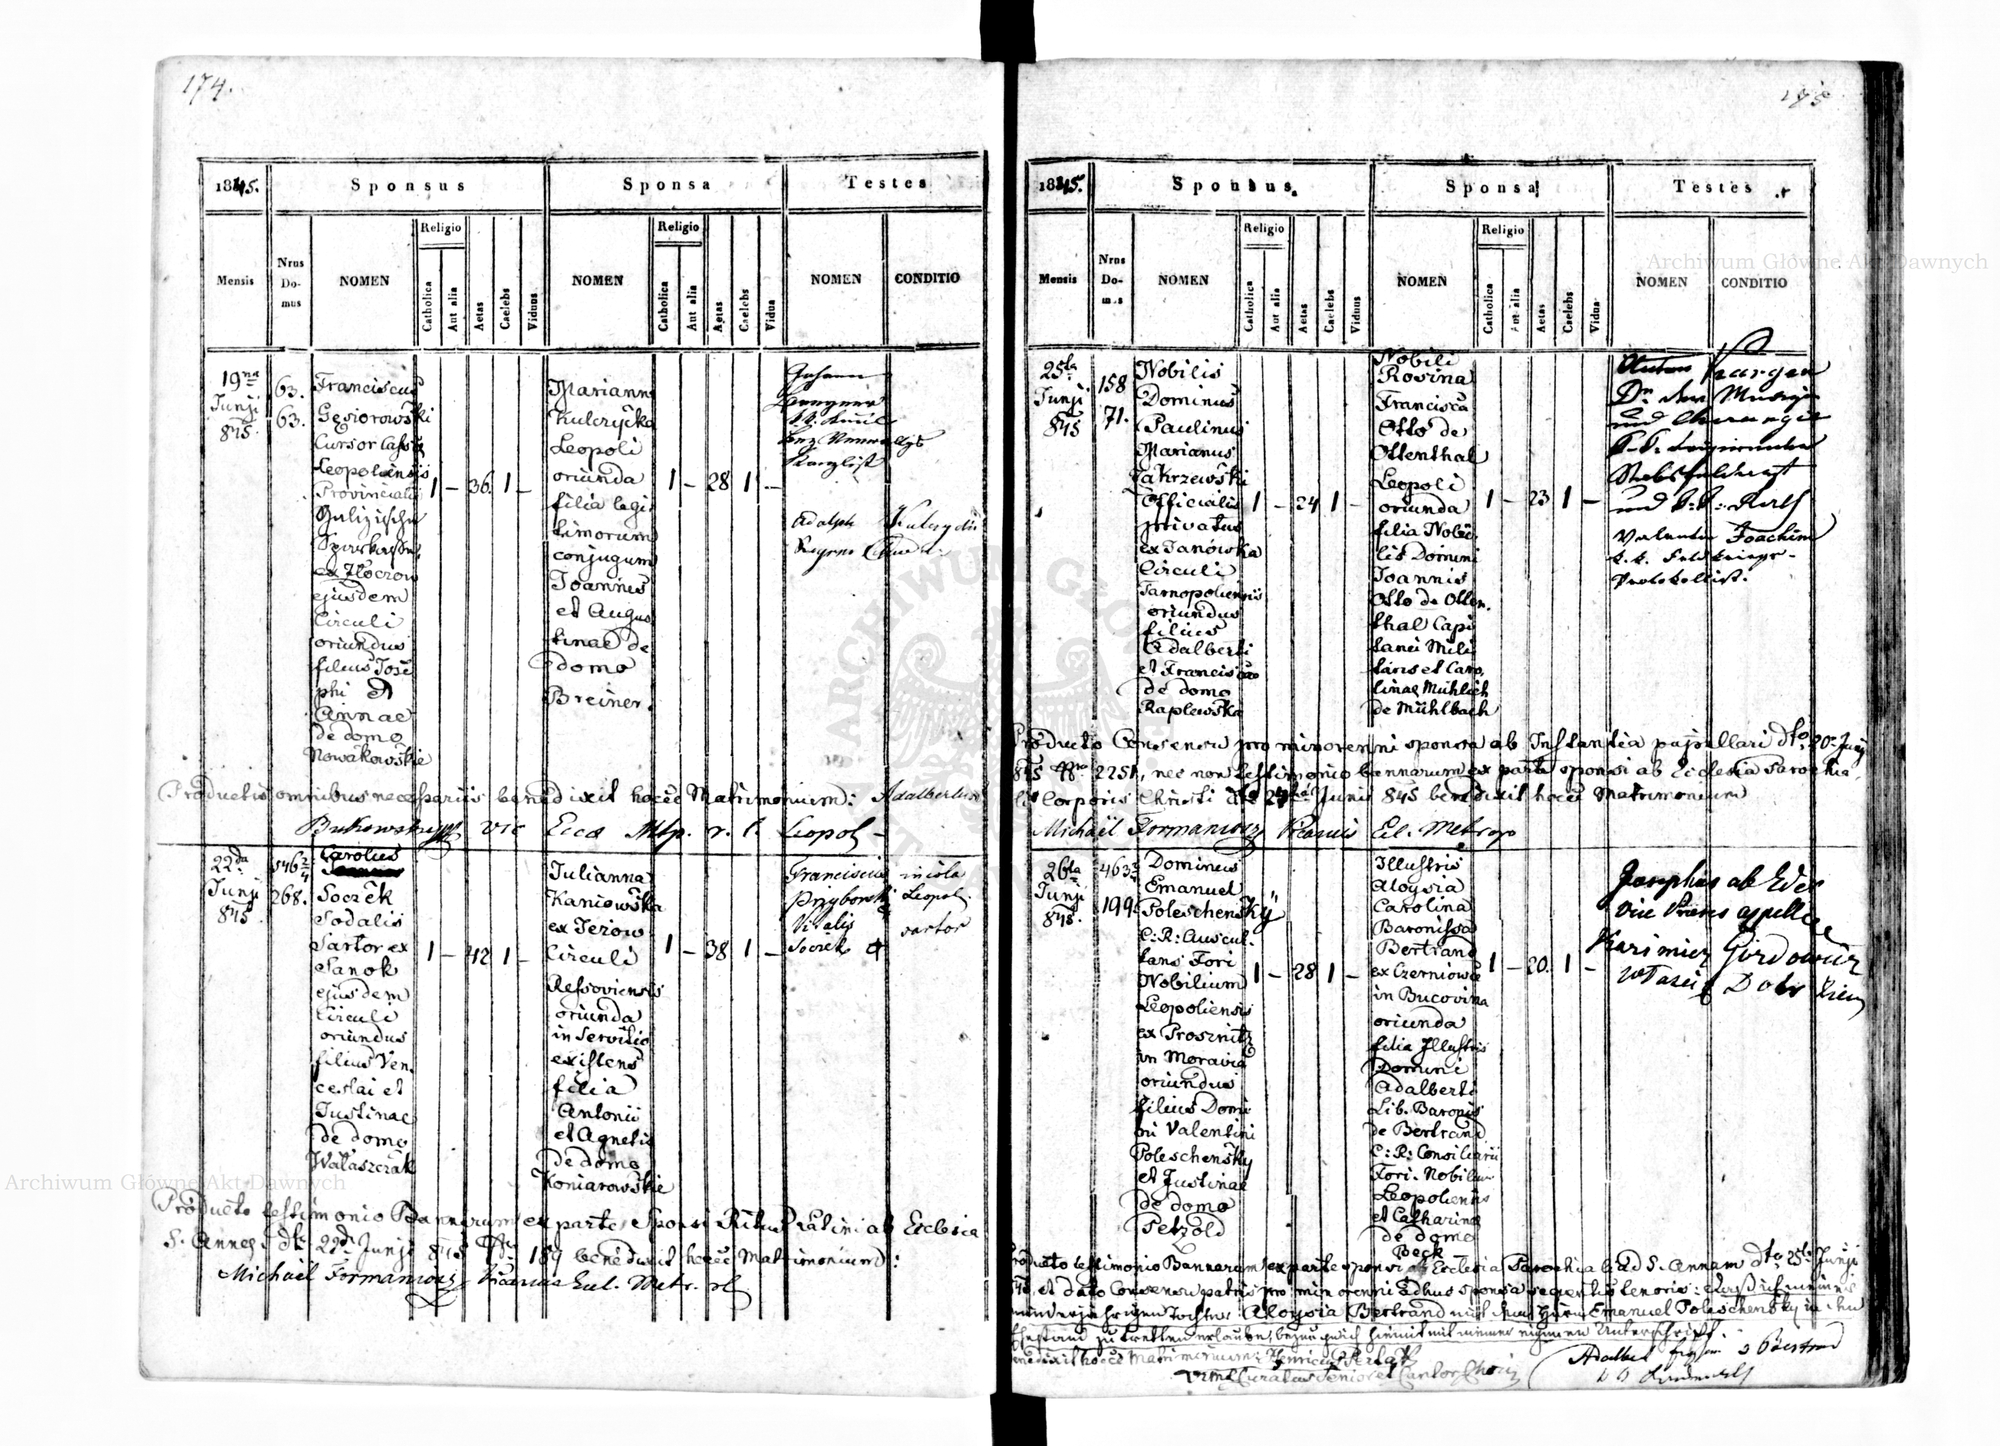 174.
1845.
Sponsus
Sponsa
Testes
Mensis
Nrus Do- mus
NOMEN
Religio
Catholica
Aut alia
Aetas
Caelebs
Viduus
NOMEN
Religio
Catholica
Aut alia
Aetas
Caelebs
Vidua
NOMEN
CONDITIO
19na
Junji
845.
63.
63.
Franciscus
Gęsiorowski
Cursor Cassae
Leopoliensis
Provincialis
Galizische
Sparkasse,
ex Złoczow
ejusdem
Circuli
oriundus
filius Jose
phi et
Annae
de domo
Nowakowskie
1 – 36. 1 –
Marianna
Kulczycka
Leopoli
oriunda
filia legi
timorum
conjugum
Joannis
et Augus
tinae de
domo
Breiner.
1 – 28 1 –
Johann
Kanzlist
Adolph
Productis omnibus necessariis benedixit hocce Matrimonium: Adalbertus
Bukowski vic Ecca Mtp. r. l. Leopol –
22da
Junji
845.
546 2/4
268.
Carolus
Soczek
Sodalis
Sartor ex
Sanok
ejusdem
Circuli
oriundus
filius Ven
ceslai et
Justinae
de domo
Wałaszczak
1 – 42 1 –
Julianna
Kaniowska
ex Jezow
Circuli
Ressoviensis
oriunda
in Servitio
existens
filia
Antonii
et Agnetis
de domo
Koniarowskie
1 – 38 1 –
Franciscus
Przyborski
Vitalis
Soczek
incola
Leopol.
sartor
Producto testimonio Bannorum ex parte Sponsi Ritus Latini ab Ecclesia
S. Annae dto 22da Junji 845 Nro 189 benedixit hocce Matrimonium:
Michaël Formaniosz Vicarius Eccl. Metr. rl
175
1845.
Sponsus.
Sponsa
Testes
Mensis
Nrus Do- mus
NOMEN
Religio
Catholica
Aut alia
Aetas
Caelebs
Viduus
NOMEN
Religio
Catholica
Aut alia
Aetas
Caelebs
Vidua
NOMEN
CONDITIO
25ta
Junji
845
158
71.
Nobilis
Dominus
Paulinus
Marianus
Zakrzewski
Officialis
privatus
ex Janówka
Circuli
Tarnopoliensis
oriundus
filius
Adalberti
et Franciscae
de domo
Raplewska
1 – 24 1 –
Nobili
Rosina
Francisca
Otto de
Ottenthal
Leopoli
oriunda
filia Nobi
lis Domini
Joannis
Otto de Otten.
thal Capi
tanei Mili
taris et Caro
linae Mühlich
de Mühlbach
1 – 23 1 –
Dr. der Medizin
und Chirurgie
Stabsfeldarzt
und k. k. Rath
Valentin Joachim
k. k. Feldkriegs-
Protokollist.
Producto Consensu pro minorenni sponsa ab Instantia pupillari dto 20 Junij
845 Nro 2251, nec non testimonio bannorum ex parte sponsi ab Ecclesia Parochia
li Corporis Christi dto 24ta Junii 845 benedixit hocce Matrimonium
Michaël Formaniosz Vicarius Ecl. Metropo
26ta
Junji
845.
463
199
Dominus
Emanuel
Poleschensky
C: R: Auscul.
tans Fori
Nobilium
Leopoliensis
ex Prosznitz
in Moravia
oriundus
filius Domi
ni Valentini
Poleschensky
et Justinae
de domo
Petzold
1 – 28 1 –
Illustris
Aloysia
Carolina
Baronissa
Bertrand
ex Czerniowce
in Bucovina
oriunda
filia Illustris
Domini
Adalberti
Lib. Baronis
de Bertrand
C: R: Consiliarii
Fori Nobilium
Leopoliensis
et Catharinae
de domo
Beck
1 – 20. 1 –
Josephus ab Eder
vice Praeses appellae
Kazimierz
Producto testimonio Bannorum ex parte sponsi ab Ecclesia Parochiali ad S. Annam dto 25ta Junji
845 et dato Consensu patris pro minorenni adhuc sponsa sequentis tenoris: daß ich meiner
minderjährigen Tochter Aloysia Bertrand mit dem Herrn Emanuel Poleschensky in den
Ehestand zu tretten erlaube, bezeuge ich hiemit mit meiner eigenen Unterschrift.
benedixit hocce Matrimonium: Henricus
Curatus Senior et Cantor Chori
Archiwum Główne Akt Dawnych
Archiwum Główne Akt Dawnych
ARCHIWUM GŁÓWNE